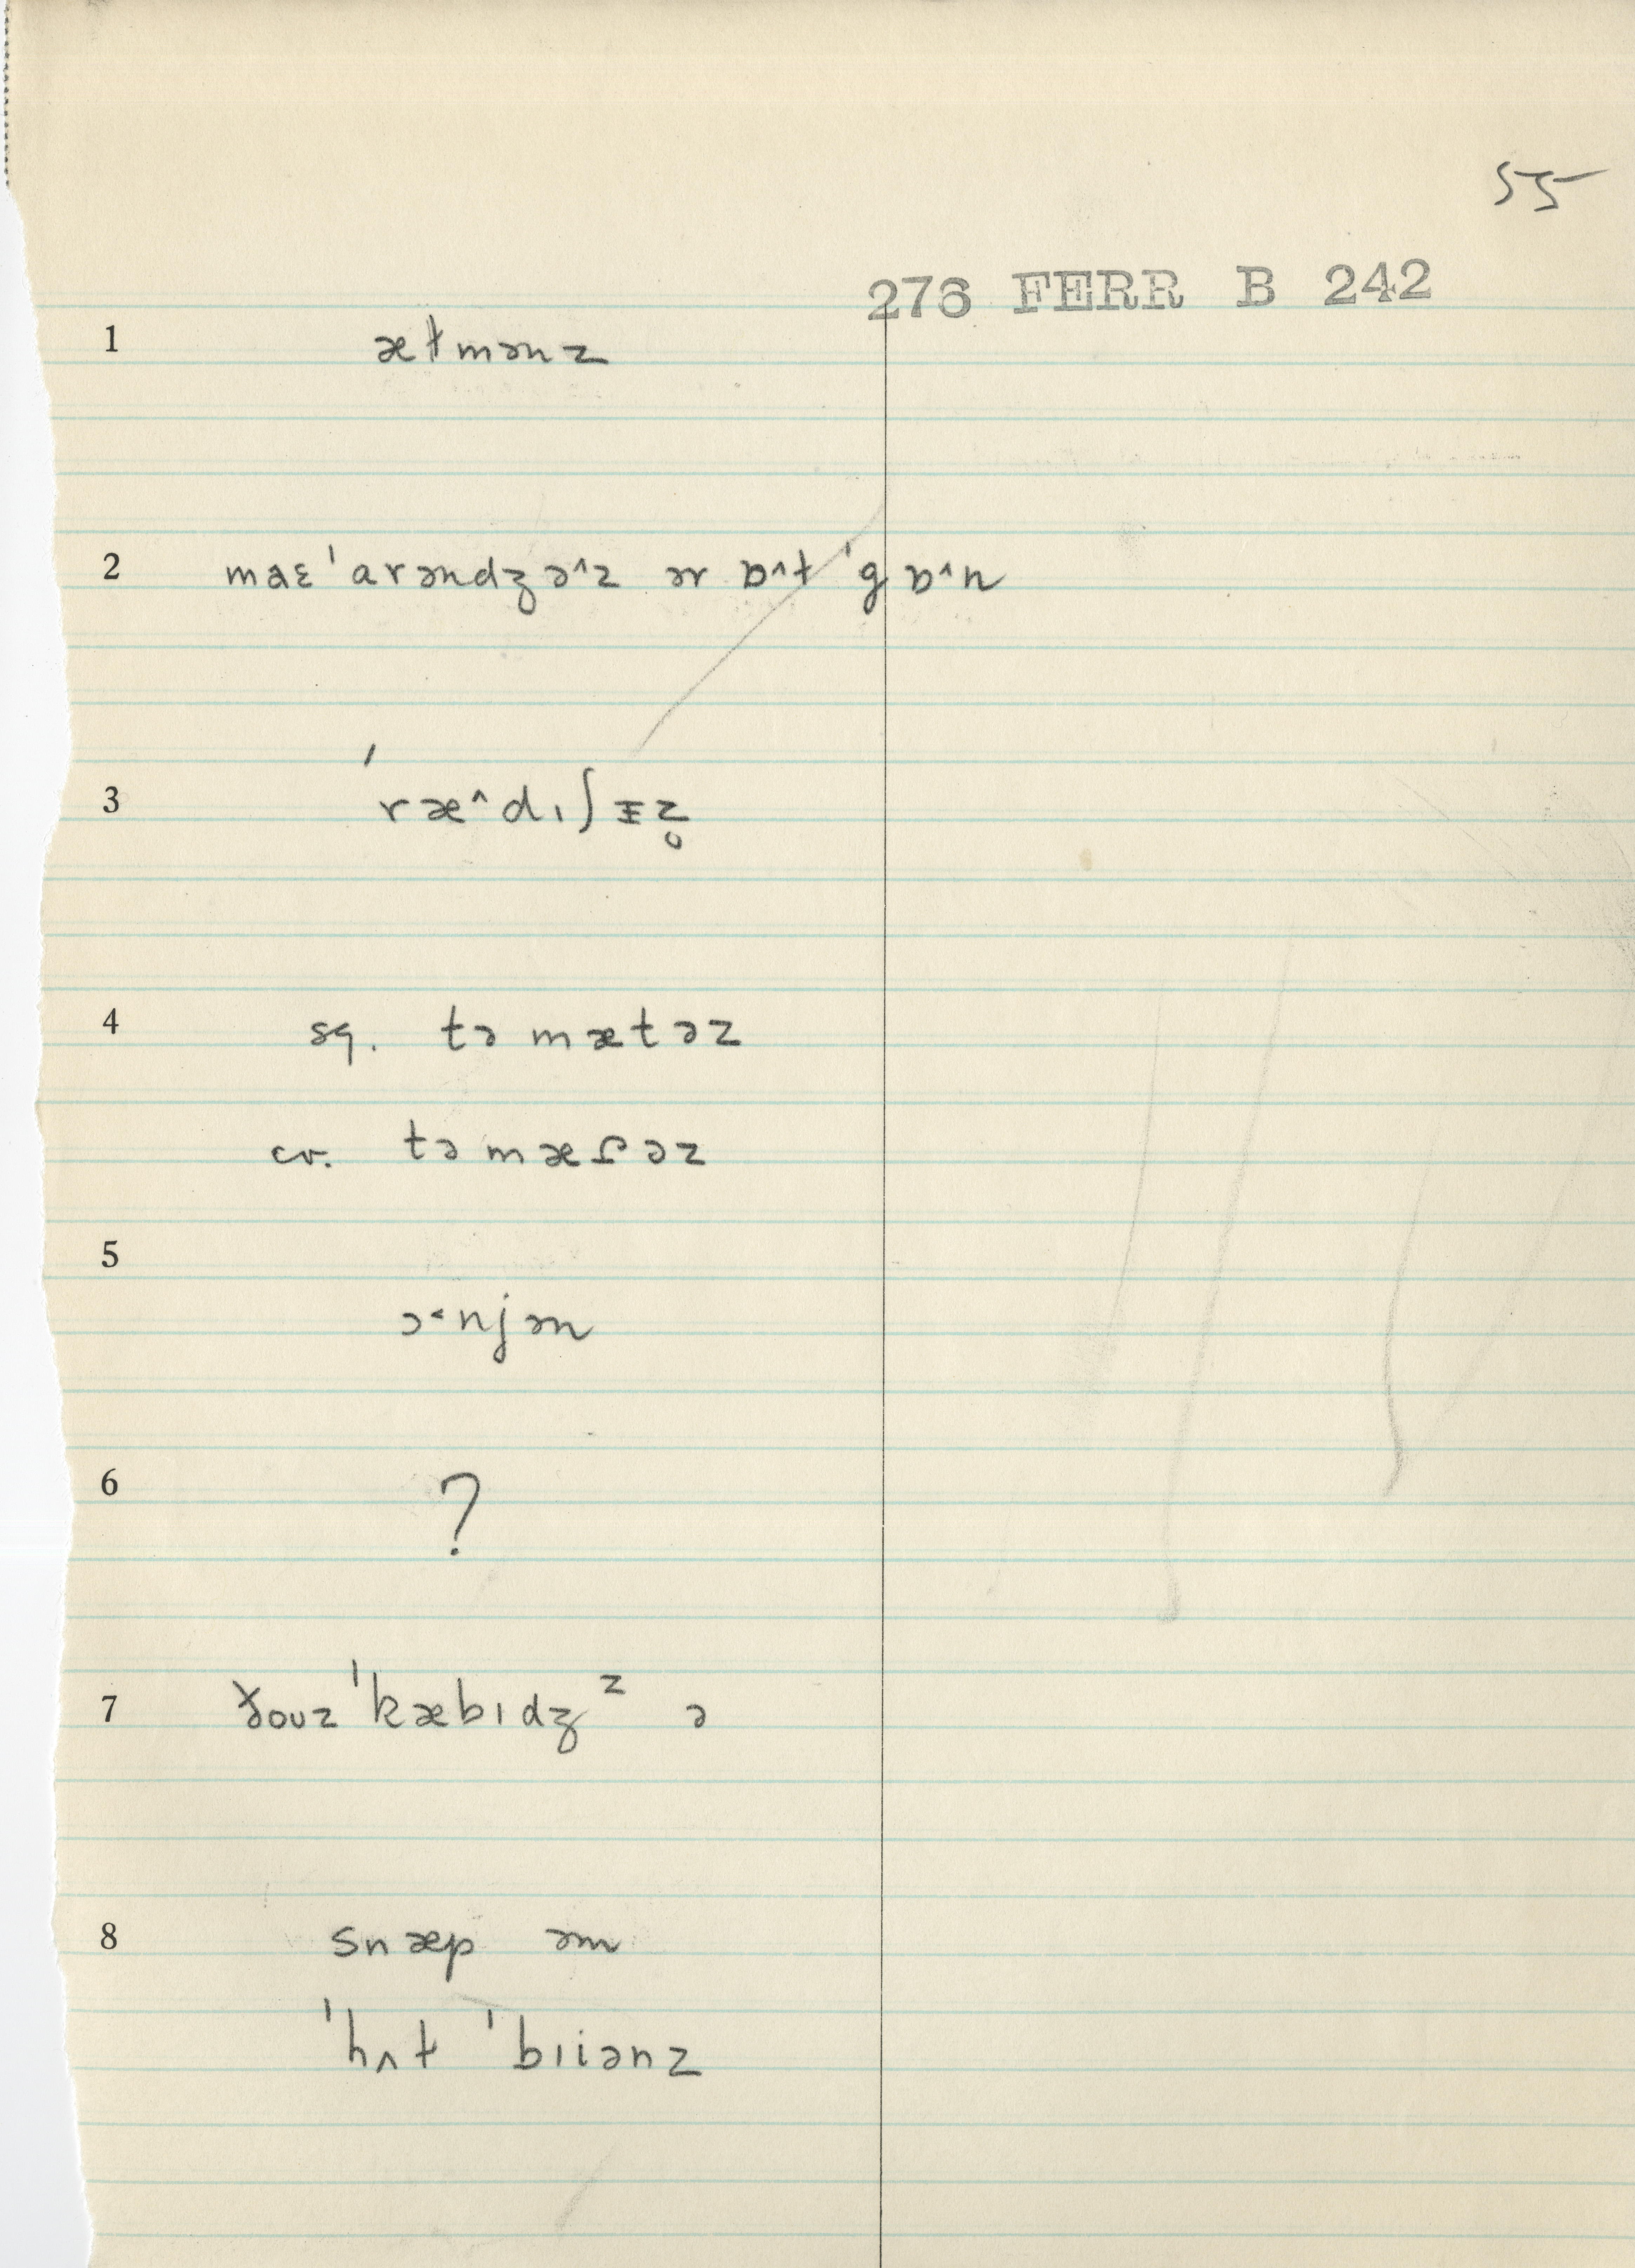 55
276 FERR B 242
1 æɫmənz
2 maɛ ˈarəndʒə^z ər ɒ^ɫ ˈgɒ^n
3 ˈræ^dıʃɪ̵z̥
4 sq. təmætəz
cv. təmæɾəz
5 ɔ˂njən
6 ?
7 ðouz ˈkæbıdʒᶻ ə
8 snæp əm
ˈhʌɫ ˈbıiənz